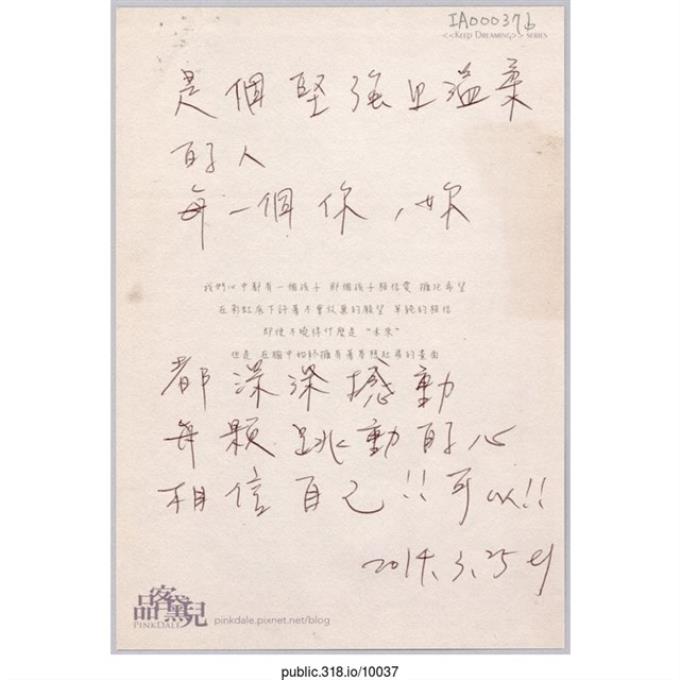 IA00037b
<<KEEP DREAMING>> SERIES
是個堅強且溫柔
的人
每一個你,妳
我們心中都有一個孩子 那個孩子相信愛 擁抱希望
在彩虹底下許著不會放棄的願望 單純的相信
即使不曉得什麼是 "未來"
但是 在腦中始終擁有著夢想起飛的畫面
都深深撼動
每顆跳動的心
相信自己!!可以!!
2014.3.25
品客黛兒
PINKDALE
pinkdale.pixnet.net/blog
public.318.io/10037